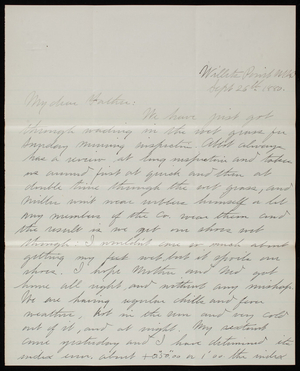 Willets Point N.Y.
Sept 26th 1880.
My dear Father:
We have just got
through wading in the wet grass for
Sunday morning inspection. Abbot always
has a review, at long inspection and takes
us around first at quick and then at
double time through the wet grass, and
Miller wont wear rubbers himself a let
any members of the Co. wear them and
the result is we get our shoes wet
through. I wouldn't care so much about
getting my feet wet but it spoils our
shoes. I hope Mother and Med got
home all right and without any mishap.
We are having regular chills and fever
weather. Hot in the sun and very cold
out of it, and at night. My sextant
came yesterday and I have determined its
index error. about + 0° 30" or 1' on the index